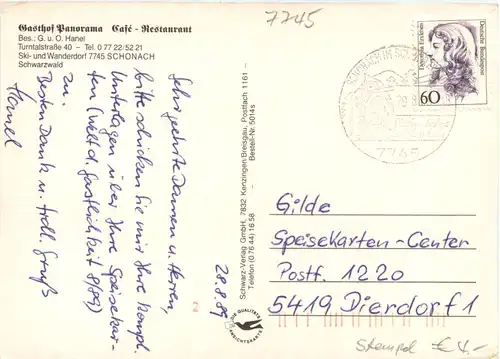 Gasthof Panorama Café - Restaurant
Bes.: G. u. O. Hanel
Turntalstraße 40 – Tel. 0 77 22/52 21
Ski- und Wanderdorf 7745 SCHONACH
Schwarzwald
Sehr geehrte Damen u. Herren,
bitte schicken Sie mir Ihre kompl.
Unterlagen über Ihre Speisekar-
ten (Welt d. Gastlichkeit 8/89)
zu.
Besten Dank u. frdl. Gruß
Hanel
28.8.89
Schwarz-Verlag GmbH, 7832 Kenzingen/Breisgau, Postfach 1161 –
Telefon (0 76 44) 16 58 – Bestell-Nr. 5014s
DIE QUALITÄTS
ANSICHTSKARTE
7745
Dorothea Erxleben
Deutsche Bundespost
60
7745
Gilde
Speisekarten-Center
Postf. 1220
5419 Dierdorf 1
Stempel € 4.-